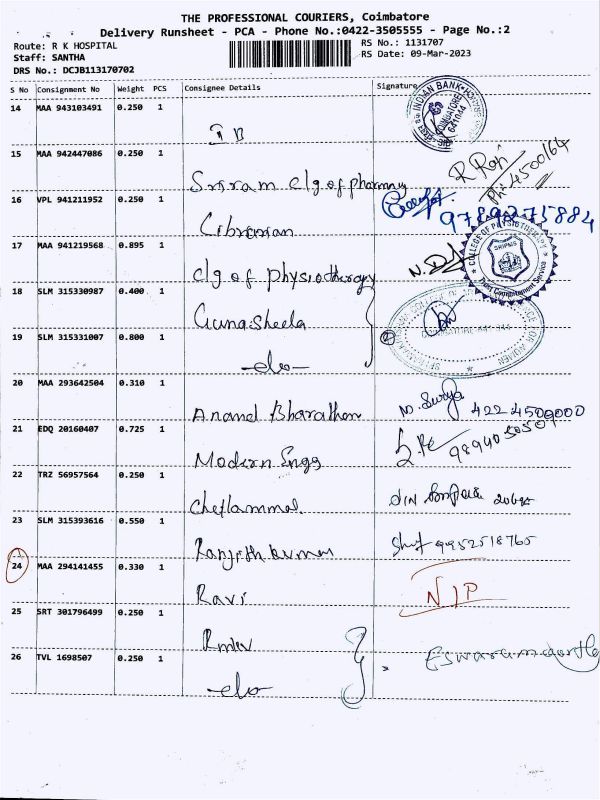 THE PROFESSIONAL COURIERS, Coimbatore
Delivery Runsheet - PCA - Phone No.:0422-3505555 - Page No.:2
Route: R K HOSPITAL
Staff: SANTHA
DRS No.: DCJB113170702
RS No.: 1131707
RS Date: 09-Mar-2023
S No Consignment No Weight PCS Consignee Details Signature
14 MAA 943103491 0.250 1
IB
INDIAN BANK
COIMBATORE
641044
15 MAA 942447086 0.250 1
Sriram clg of pharmacy
R Raji
Ph: 4500164
16 VPL 941211952 0.250 1
Librarian
9789275884
17 MAA 941219568 0.895 1
clg of physiotherapy
COLLEGE OF PHYSIOTHERAPY
SRIPMS
18 SLM 315330987 0.400 1
Gunasheela
19 SLM 315331007 0.800 1
-do-
20 MAA 293642504 0.310 1
Anand Bharathan
M. Surya
4224500000
21 EDQ 20160407 0.725 1
Modern Engg
22 TRZ 56957564 0.250 1
Chellammal
23 SLM 315393616 0.550 1
Ranjith kumar
9952518765
24 MAA 294141455 0.330 1
Ravi
N/P
25 SRT 301796499 0.250 1
26 TVL 1698507 0.250 1
-do-